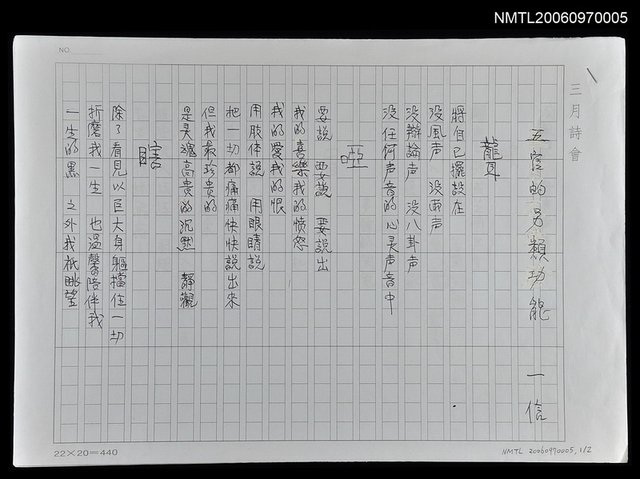 NMTL20060970005
NO.
三月詩會
五官的另類功能 一信
聾
將自己擺設在
沒風聲 沒雨声
沒辯論声 沒八卦声
沒任何声音的心灵声音中
啞
要說 要說 要說出
我的喜樂我的憤怨
我的愛我的恨
用肢体說 用眼睛說
把一切都痛痛快快說出來
但我最珍貴的
是灵魂高貴的沉默 靜觀
瞎
除了看見以巨大身軀擋住一切
折磨我一生 也溫馨陪伴我
一生的黑 之外我祇眺望
22×20=440
NMTL 20060970005, 1/2